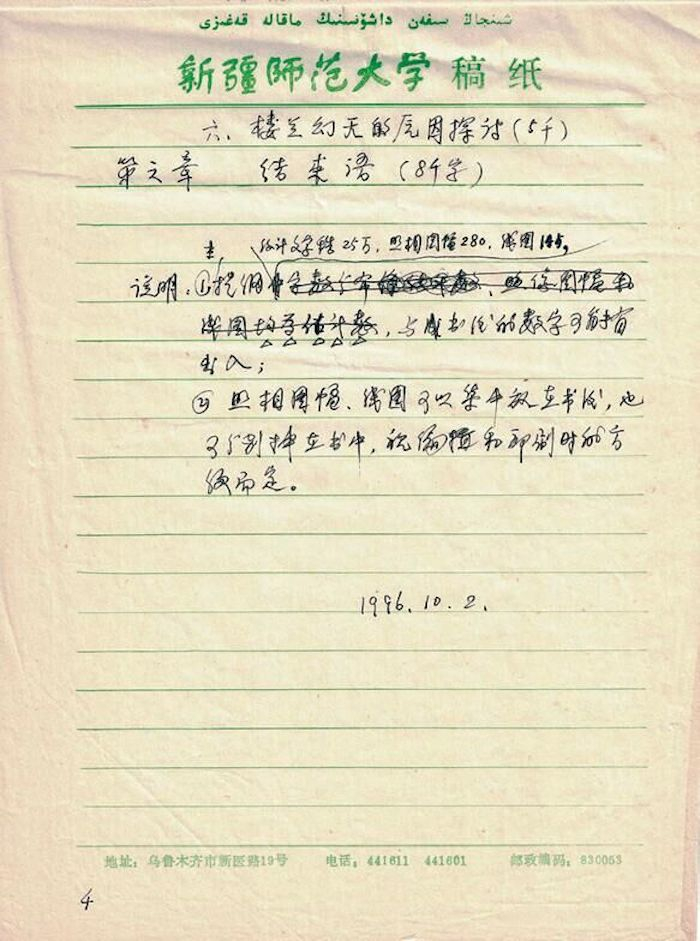 شىنجاڭ سىفەن داشۆسىنىڭ ماقالە قەغىزى
新疆师范大学 稿纸
六、楼兰幻灭的原因探讨(5千)
第六章 结束语(8千字)
估计文字稿25万,照相图幅280,线图145。
说明:①提纲中字数
线图均为估计数,与成书后的数字可能有
出入;
② 照相图幅、线图可以集中放在书后,也
可分别插在书中,视编辑和印刷时的方
便而定。
1996.10.2.
地址:乌鲁木齐市新医路19号 电话:441611 441601 邮政编码:830053
4